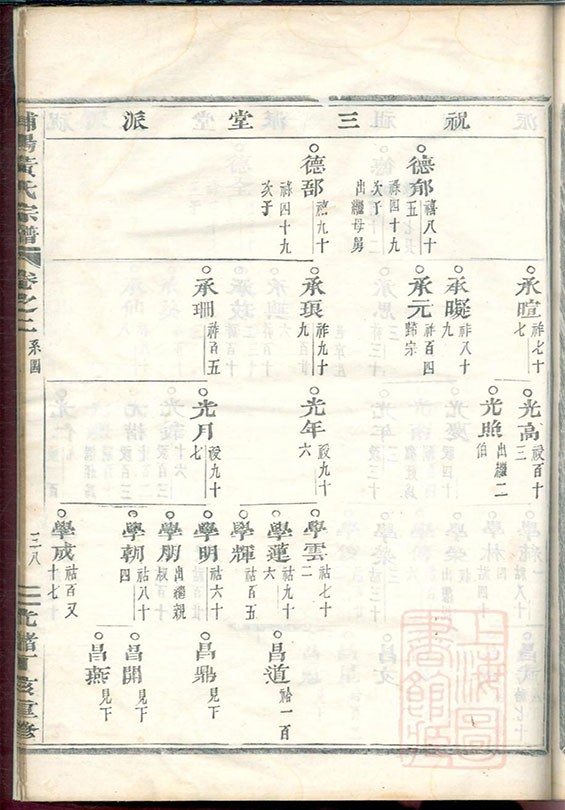 祝三堂派
德郁 禧八十五
禧四十九次于
出繼母舅
德郚 禧九十
禧四十九
次于
承暄 祚七十七
承曦 祚八十九
承元 祚百四
歸宗
承瑔 祚九十九
承珊 祚百五
光高 祾百十三
光照 出繼二伯
光年 祾九十六
光月 祾九十七
學雲 祜七十二
學蓮 祜九十六
學輝 祜百五
學明 祜六十
學朋 出繼親叔
學朝 祜八十四
學成 祜百又十七
昌道 祫一百
昌鼎 見下
昌開 見下
昌燕 見下
浦陽黃氏宗譜 卷之二 系圖 三八 光緒丁亥重修
上海圖書館藏